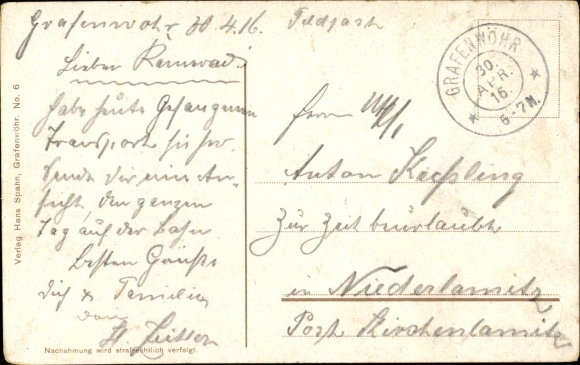 Grafenwöhr 30.4.16.
Feldpost
Lieber
habe heute Gefangenen
Transport
Sende dir eine An-
sicht, den ganzen
Tag auf der Bahn
besten Grüße
dich & Familie
von
Herrn
Anton
Zur Zeit beurlaubt
in Niederlamitz
Post Kirchenlamitz
GRAFENWÖHR
30.
APR.
16.
6-7 N.
Verlag Hans Spahn, Grafenwöhr. No. 6
Nachahmung wird strafrechtlich verfolgt.